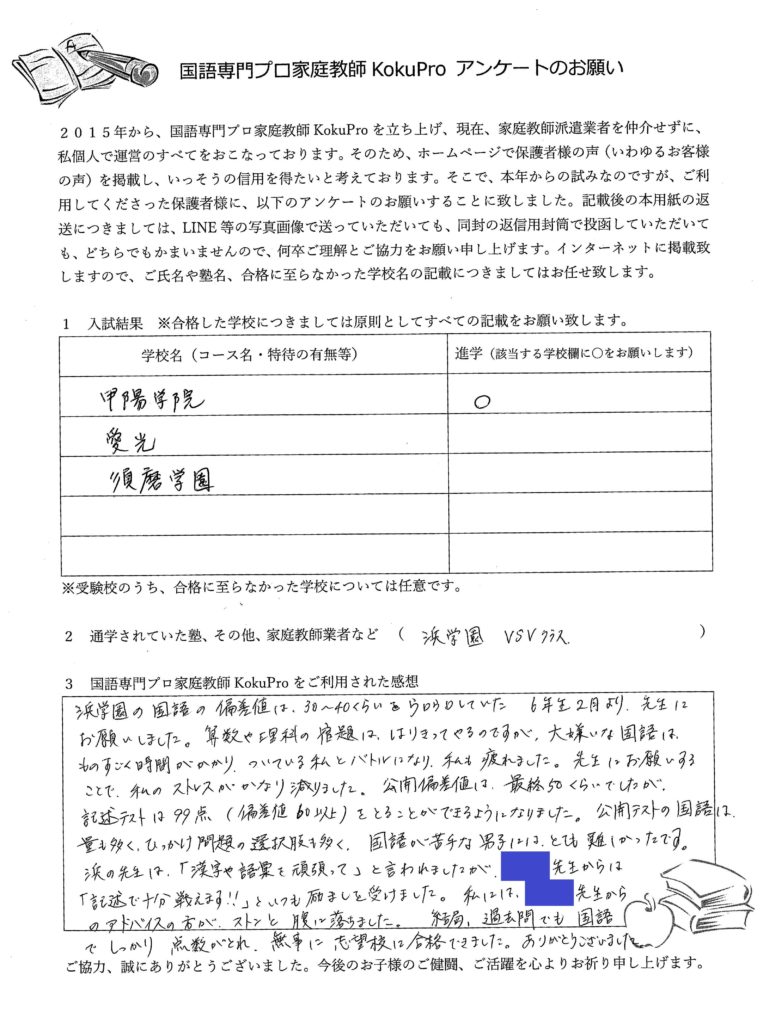 国語専門プロ家庭教師 KokuPro アンケートのお願い
２０１５年から、国語専門プロ家庭教師 KokuPro を立ち上げ、現在、家庭教師派遣業者を仲介せずに、
私個人で運営のすべてをおこなっております。そのため、ホームページで保護者様の声（いわゆるお客様
の声）を掲載し、いっそうの信用を得たいと考えております。そこで、本年からの試みなのですが、ご利
用してくださった保護者様に、以下のアンケートのお願いすることに致しました。記載後の本用紙の返
送につきましては、LINE 等の写真画像で送っていただいても、同封の返信用封筒で投函していただいて
も、どちらでもかまいませんので、何卒ご理解とご協力をお願い申し上げます。インターネットに掲載致
しますので、ご氏名や塾名、合格に至らなかった学校名の記載につきましてはお任せ致します。
1 入試結果 ※合格した学校につきましては原則としてすべての記載をお願い致します。
学校名（コース名・特待の有無等） 進学（該当する学校欄に○をお願いします）
甲陽学院 ○
愛光
須磨学園
※受験校のうち、合格に至らなかった学校については任意です。
2 通学されていた塾、その他、家庭教師業者など （ 浜学園 VSVクラス ）
3 国語専門プロ家庭教師 KokuPro をご利用された感想
浜学園の国語の偏差値は、30〜40くらいをウロウロしていた 6年生2月より、先生に
お願いしました。算数や理科の宿題は、はりきってやるのですが、大嫌いな国語は、
ものすごく時間がかかり、ついている私とバトルになり、私も疲れました。先生にお願いする
ことで、私のストレスがかなり減りました。公開偏差値は、最終50くらいでしたが、
記述テストは99点（偏差値60以上）をとることができるようになりました。公開テストの国語は、
量も多く、ひっかけ問題の選択肢も多く、国語が苦手な男子には、とても難しかったです。
浜の先生は、「漢字や語彙を頑張って」と言われましたが、 先生からは
「記述で十分戦えます!!」といつも励ましを受けました。私には、 先生から
のアドバイスの方が、ストンと腹に落ちました。結局、過去問でも国語
でしっかり点数がとれ、無事に志望校に合格できました。ありがとうございました
ご協力、誠にありがとうございました。今後のお子様のご健闘、ご活躍を心よりお祈り申し上げます。